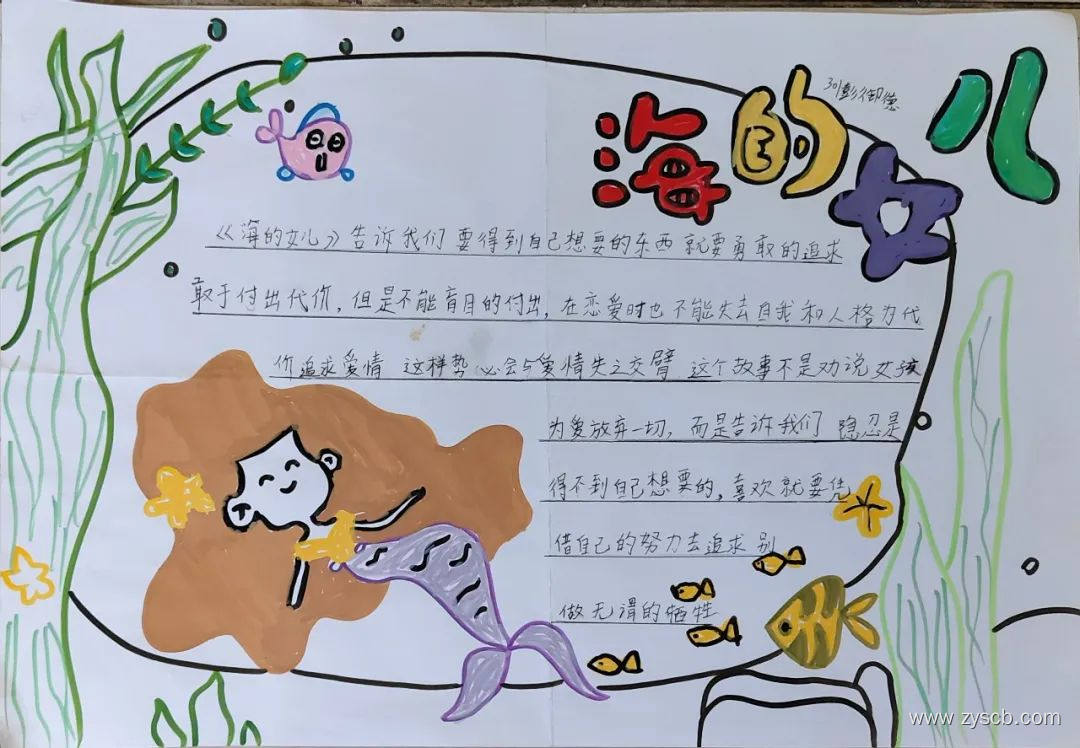 海的女儿
301彭御德
《海的女儿》告诉我们 要得到自己想要的东西 就要勇敢的追求
敢于付出代价，但是不能盲目的付出，在恋爱时也不能失去自我和人格为代
价追求爱情 这样势必会与爱情失之交臂 这个故事不是劝说女孩
为爱放弃一切，而是告诉我们 隐忍是
得不到自己想要的，喜欢就要凭
借自己的努力去追求 别
做无谓的牺牲
www.zyscb.com